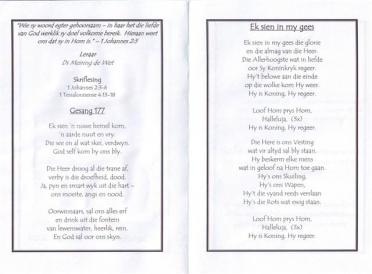 "Wie sy woord egter gehoorsaam – in haar het die liefde
van God werklik sy doel volkome bereik. Hieraan weet
ons dat sy in Hom is." – 1 Johannes 2:5
Leraar
Ds Meiring de Wet
Skriflesing
1 Johannes 2:3-6
1 Tessalonisense 4:13-18
Gesang 177
Ek sien 'n nuwe hemel kom,
'n aarde nuut en vry.
Die see en al wat skei, verdwyn,
God self kom by ons bly.
Die Heer droog al die trane af,
verby is die droefheid, dood.
Ja, pyn en smart wyk uit die hart –
ons moeite, angs en nood.
Oorwennaars, sal ons alles erf
en drink uit die fontein
van lewenswater, heerlik, rein,
En God sal oor ons skyn.
Ek sien in my gees
Ek sien in my gees die glorie
en die almag van die Heer.
Die Allerhoogste wat in liefde
oor Sy Koninkryk regeer.
Hy't belowe aan die einde
op die wolke kom Hy weer.
Hy is Koning, Hy regeer.
Loof Hom prys Hom,
Halleluja, (3x)
Hy is Koning, Hy regeer.
Die Here is ons Vesting
wat vir altyd sal bly staan.
Hy beskerm elke mens
wat in geloof na Hom toe gaan.
Hy's ons Skuiling,
Hy's ons Wapen,
Hy't die vyand reeds verslaan
Hy's die Rots wat ewig staan.
Loof Hom prys Hom,
Halleluja, (3x)
Hy is Koning, Hy regeer.